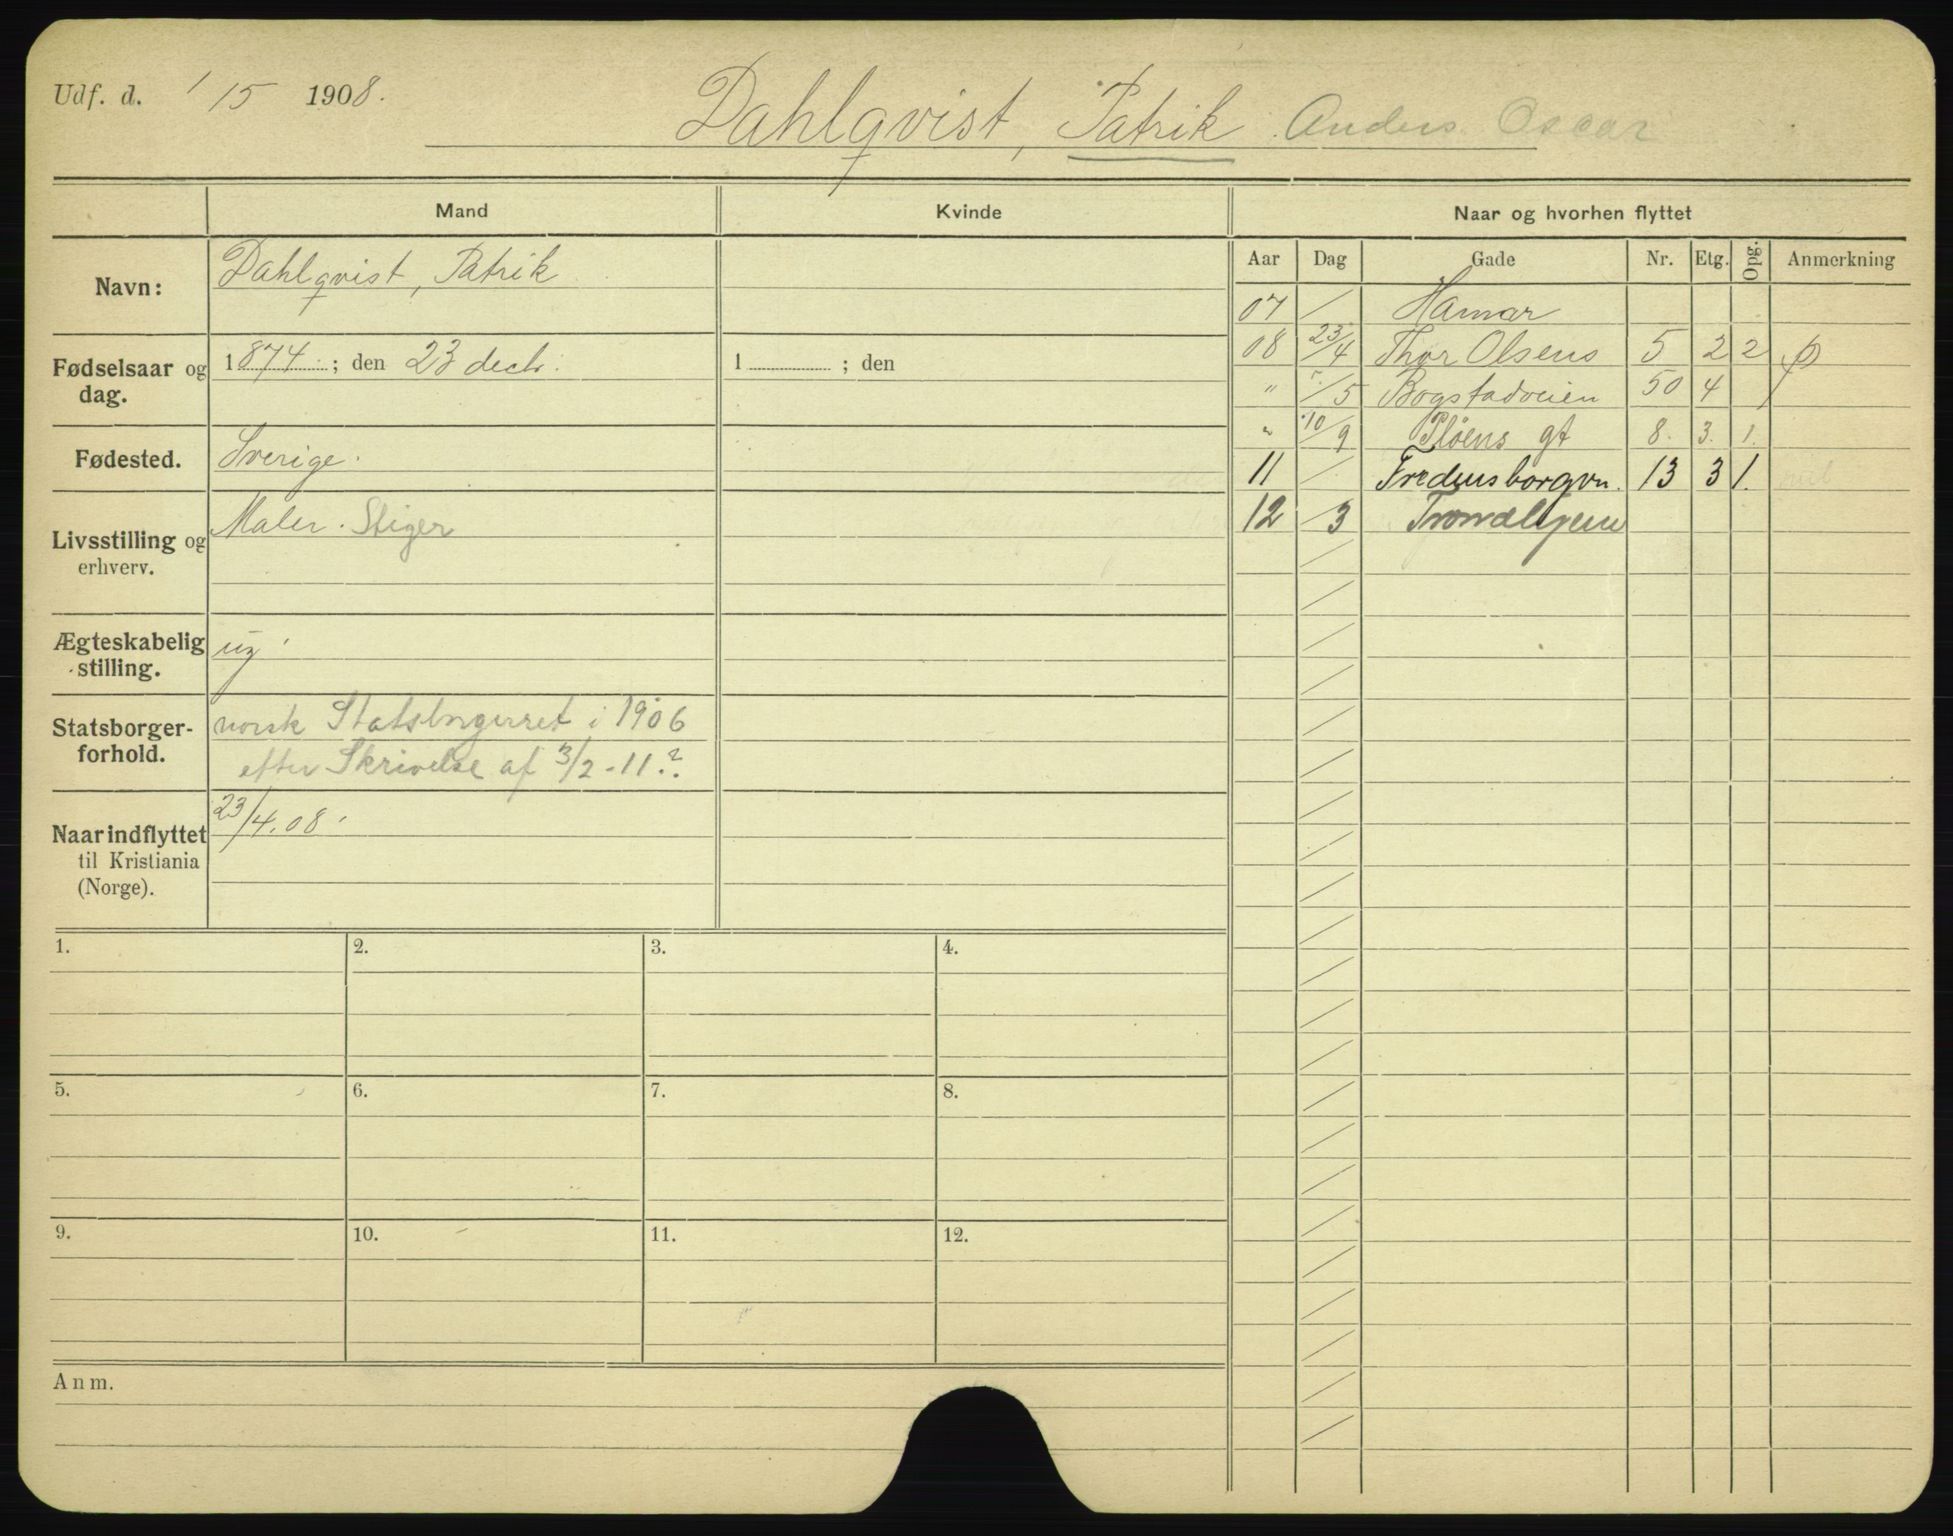 Udf. d. 1/5 1908.
Dahlqvist, Patrik Anders Oscar
Mand
Kvinde
Naar og hvorhen flyttet
Navn: Dahlqvist, Patrik
Fødselsaar og dag. 1874 ; den 23 decb.
1 ; den
Fødested. Sverige.
Livsstilling og erhverv. Maler. Stiger
Ægteskabelig stilling. ug
Statsborgerforhold. norsk Statsborgerret i 1906
efter Skrivelse af 3/2-11.?
Naar indflyttet til Kristiania (Norge). 23/4.08.
Aar Dag Gade Nr. Etg. Opg. Anmerkning
07 / Hamar
08 23/4 Thor Olsens 5 2 2
" /5 Bogstadveien 50 4
" 10/9 Pløens gt 8. 3. 1.
11 / Fredensborgvn. 13 3 1.
12 /3 Trondhjem
1.
2.
3.
4.
5.
6.
7.
8.
9.
10.
11.
12.
Anm.